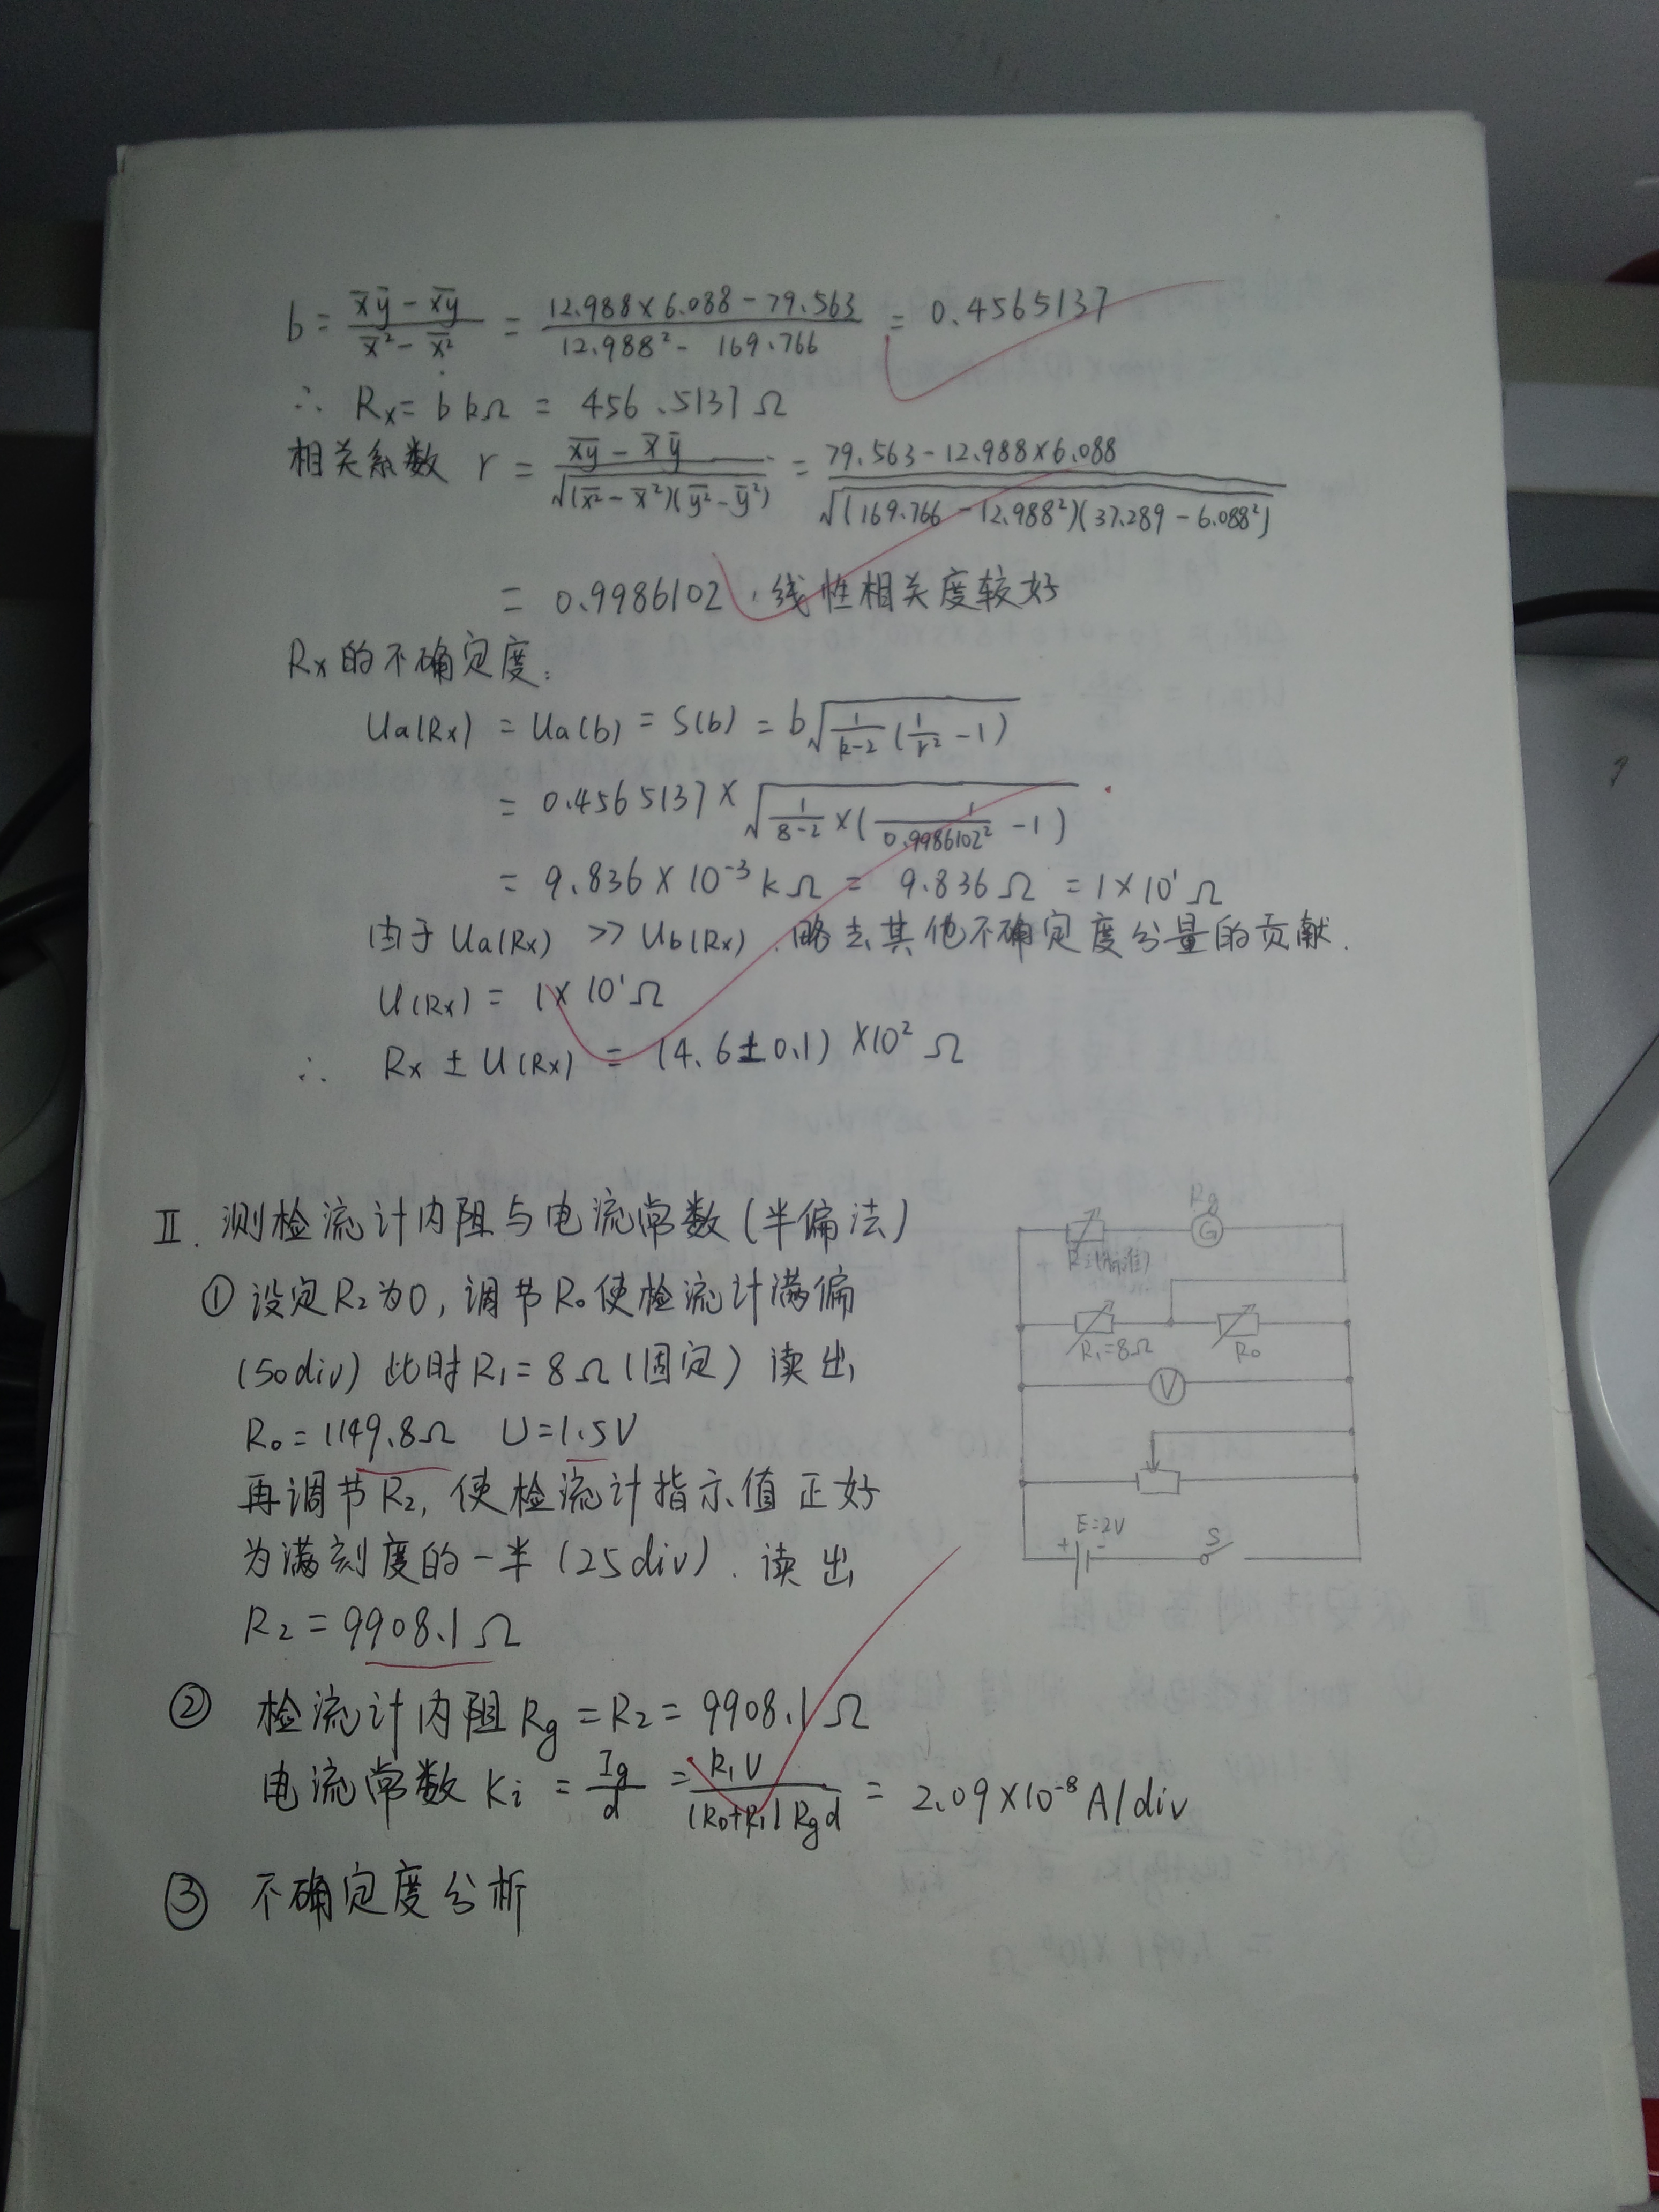 b = (x̄ȳ - \overline{xy})/(x̄² - \overline{x²}) = (12.988×6.088-79.563)/(12.988² - 169.766) = 0.4565137
∴ Rx = b kΩ = 456.5137Ω
相关系数 r = (\overline{xy} - x̄ȳ)/√((\overline{x²} - x̄²)(\overline{y²} - ȳ²)) = (79.563-12.988×6.088)/√((169.766-12.988²)(37.289-6.088²))
= 0.9986102,线性相关度较好
Rx的不确定度:
Ua(Rx) = Ua(b) = S(b) = b√(1/(k-2) (1/r² -1))
= 0.4565137×√(1/(8-2) ×(1/0.9986102² -1))
= 9.836×10⁻³kΩ = 9.836Ω = 1×10¹Ω
由于Ua(Rx) >> Ub(Rx).略去其他不确定度分量的贡献.
U(Rx) = 1×10¹Ω
∴ Rx ± U(Rx) = (4.6±0.1)×10² Ω
Ⅱ. 测检流计内阻与电流常数(半偏法)
① 设定R₂为0,调节R₀使检流计满偏
(50div) 此时R₁=8Ω(固定) 读出
R₀=1149.8Ω U=1.5V
再调节R₂,使检流计指示值正好
为满刻度的一半(25div).读出
R₂=9908.1Ω
Rg
G
R₁=8Ω
R₀
V
E=2V
+ -
S
② 检流计内阻Rg=R₂=9908.1Ω
电流常数Ki = Ig/d = R₁V/((R₀+R₁)Rgd) = 2.09×10⁻⁸A/div
③ 不确定度分析